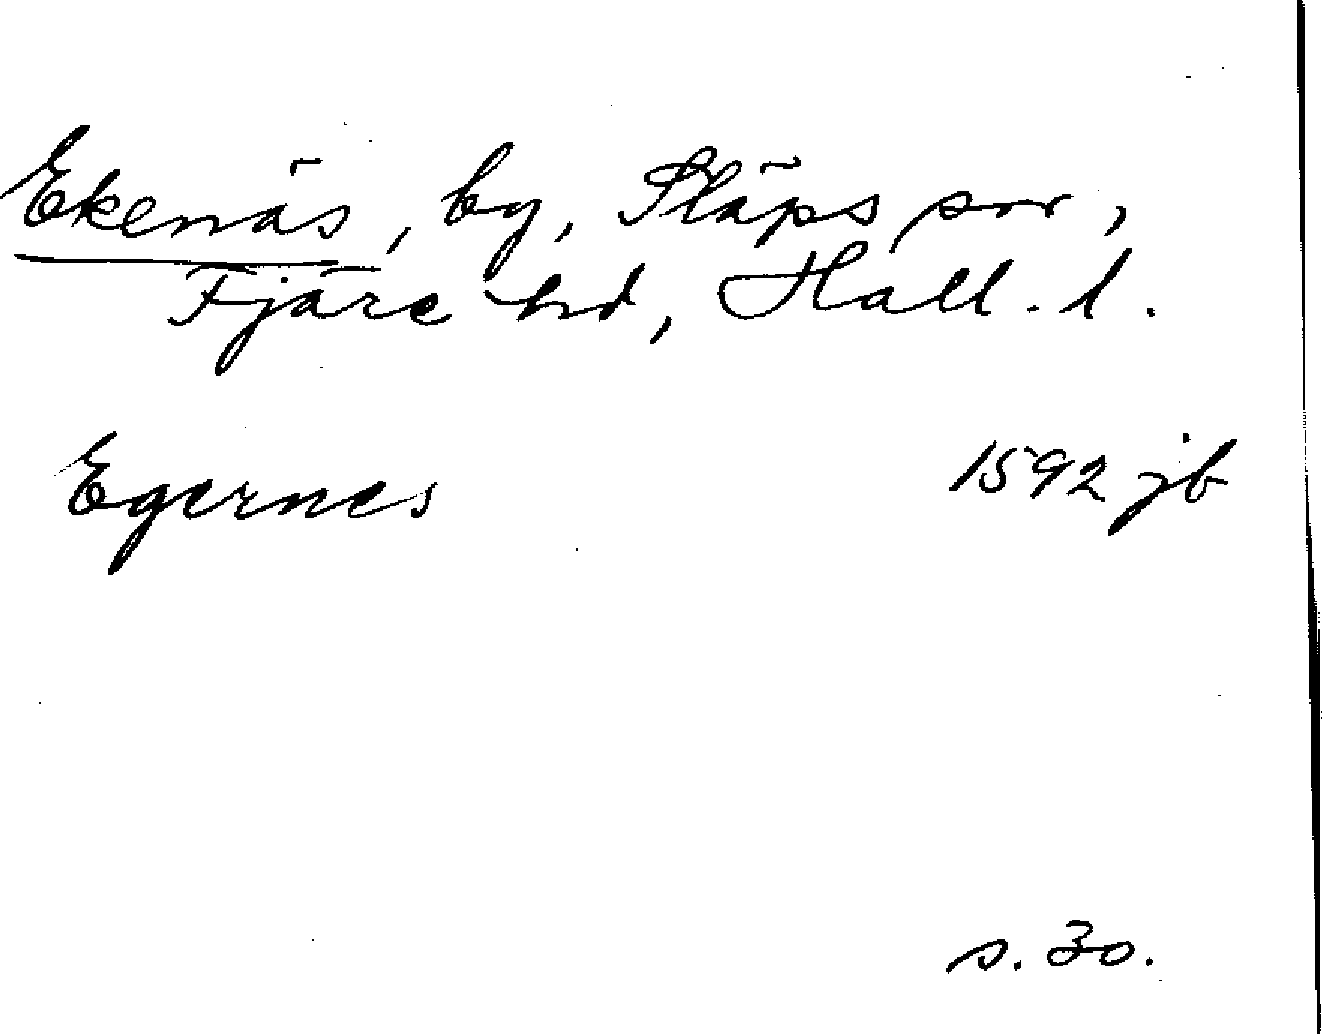 Ekenäs, by, Släps sn,
Fjäre hd, Hall. l.
Egernes 1592 jb
s. 30.